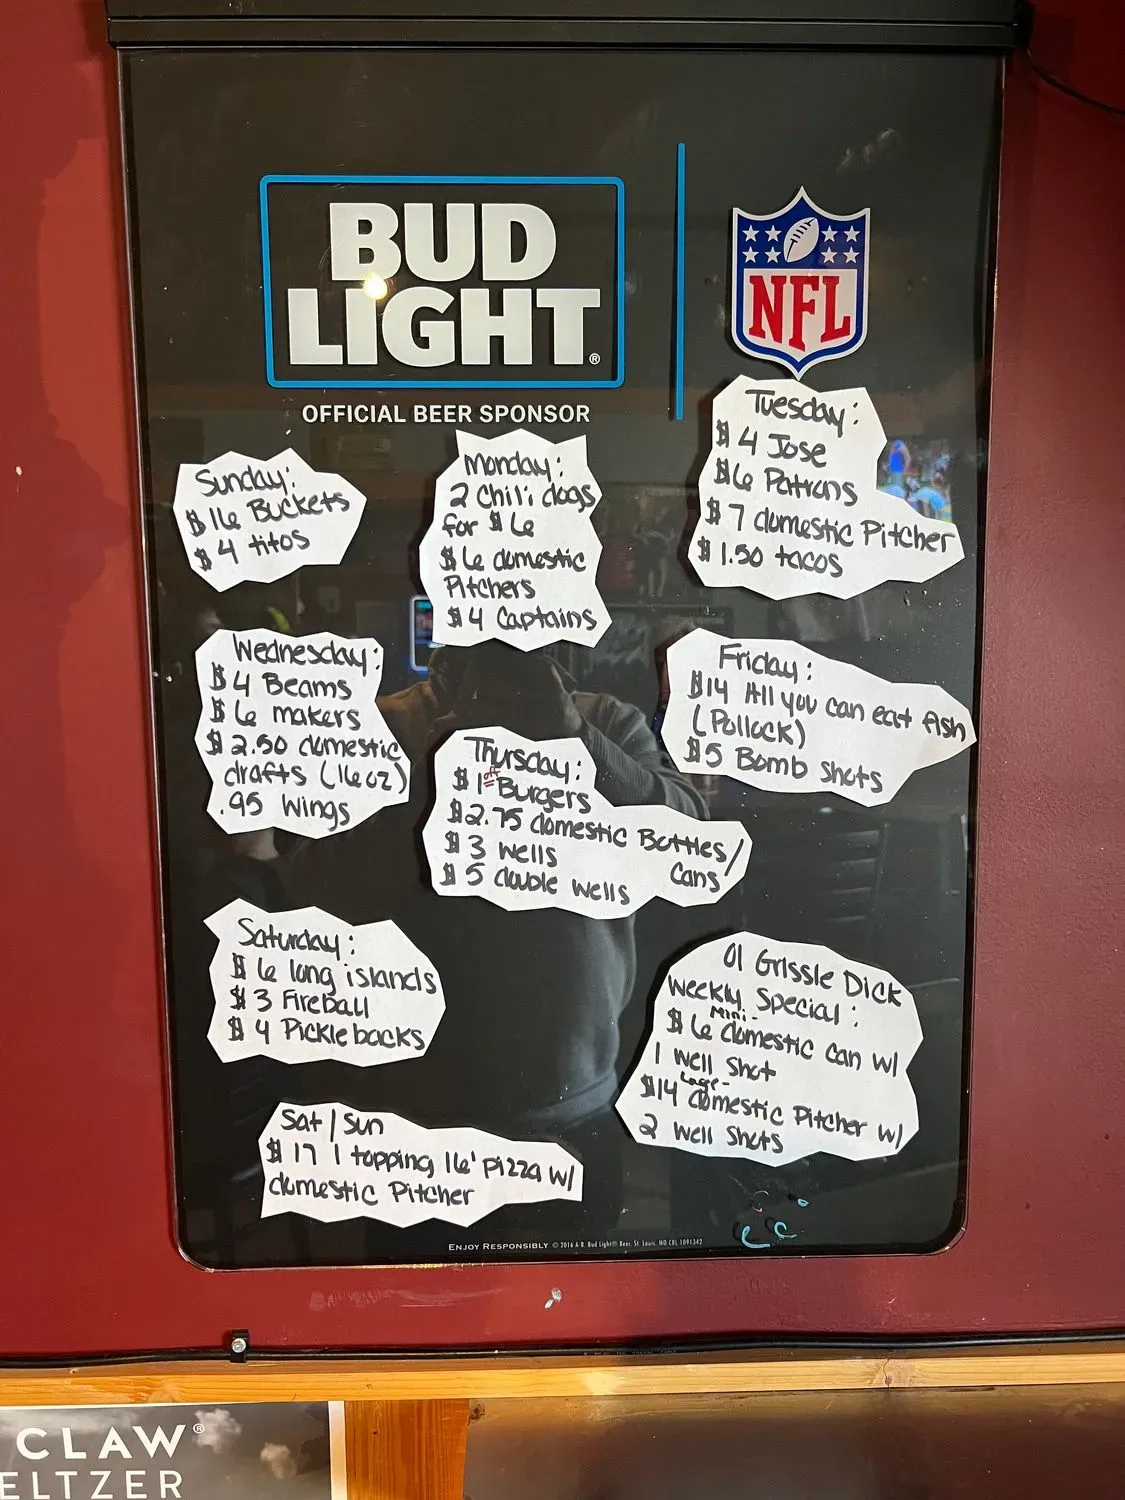 BUD
LIGHT®
OFFICIAL BEER SPONSOR
NFL
Sunday:
$16 Buckets
$4 titos
Monday:
2 Chili dogs
for $6
$6 domestic
Pitchers
$4 Captains
Tuesday:
$4 Jose
$6 Patrons
$7 domestic Pitcher
$1.50 tacos
Wednesday:
$4 Beams
$6 makers
$2.50 domestic
drafts (16oz)
.95 Wings
Thursday:
$1 off Burgers
$2.75 domestic Bottles/
Cans
$3 wells
$5 double wells
Friday:
$14 All you can eat fish
(Pollock)
$5 Bomb shots
Saturday:
$6 long islands
$3 Fireball
$4 Picklebacks
Ol Grissle Dick
Weekly Special:
Mini-
$6 domestic can w/
1 well shot
Large-
$14 domestic Pitcher w/
2 well shots
Sat/Sun
$17 1 topping 16' pizza w/
domestic Pitcher
ENJOY RESPONSIBLY © 2016 A-B, Bud Light® Beer, St. Louis, MO CBL 1091342
CLAW®
ELTZER